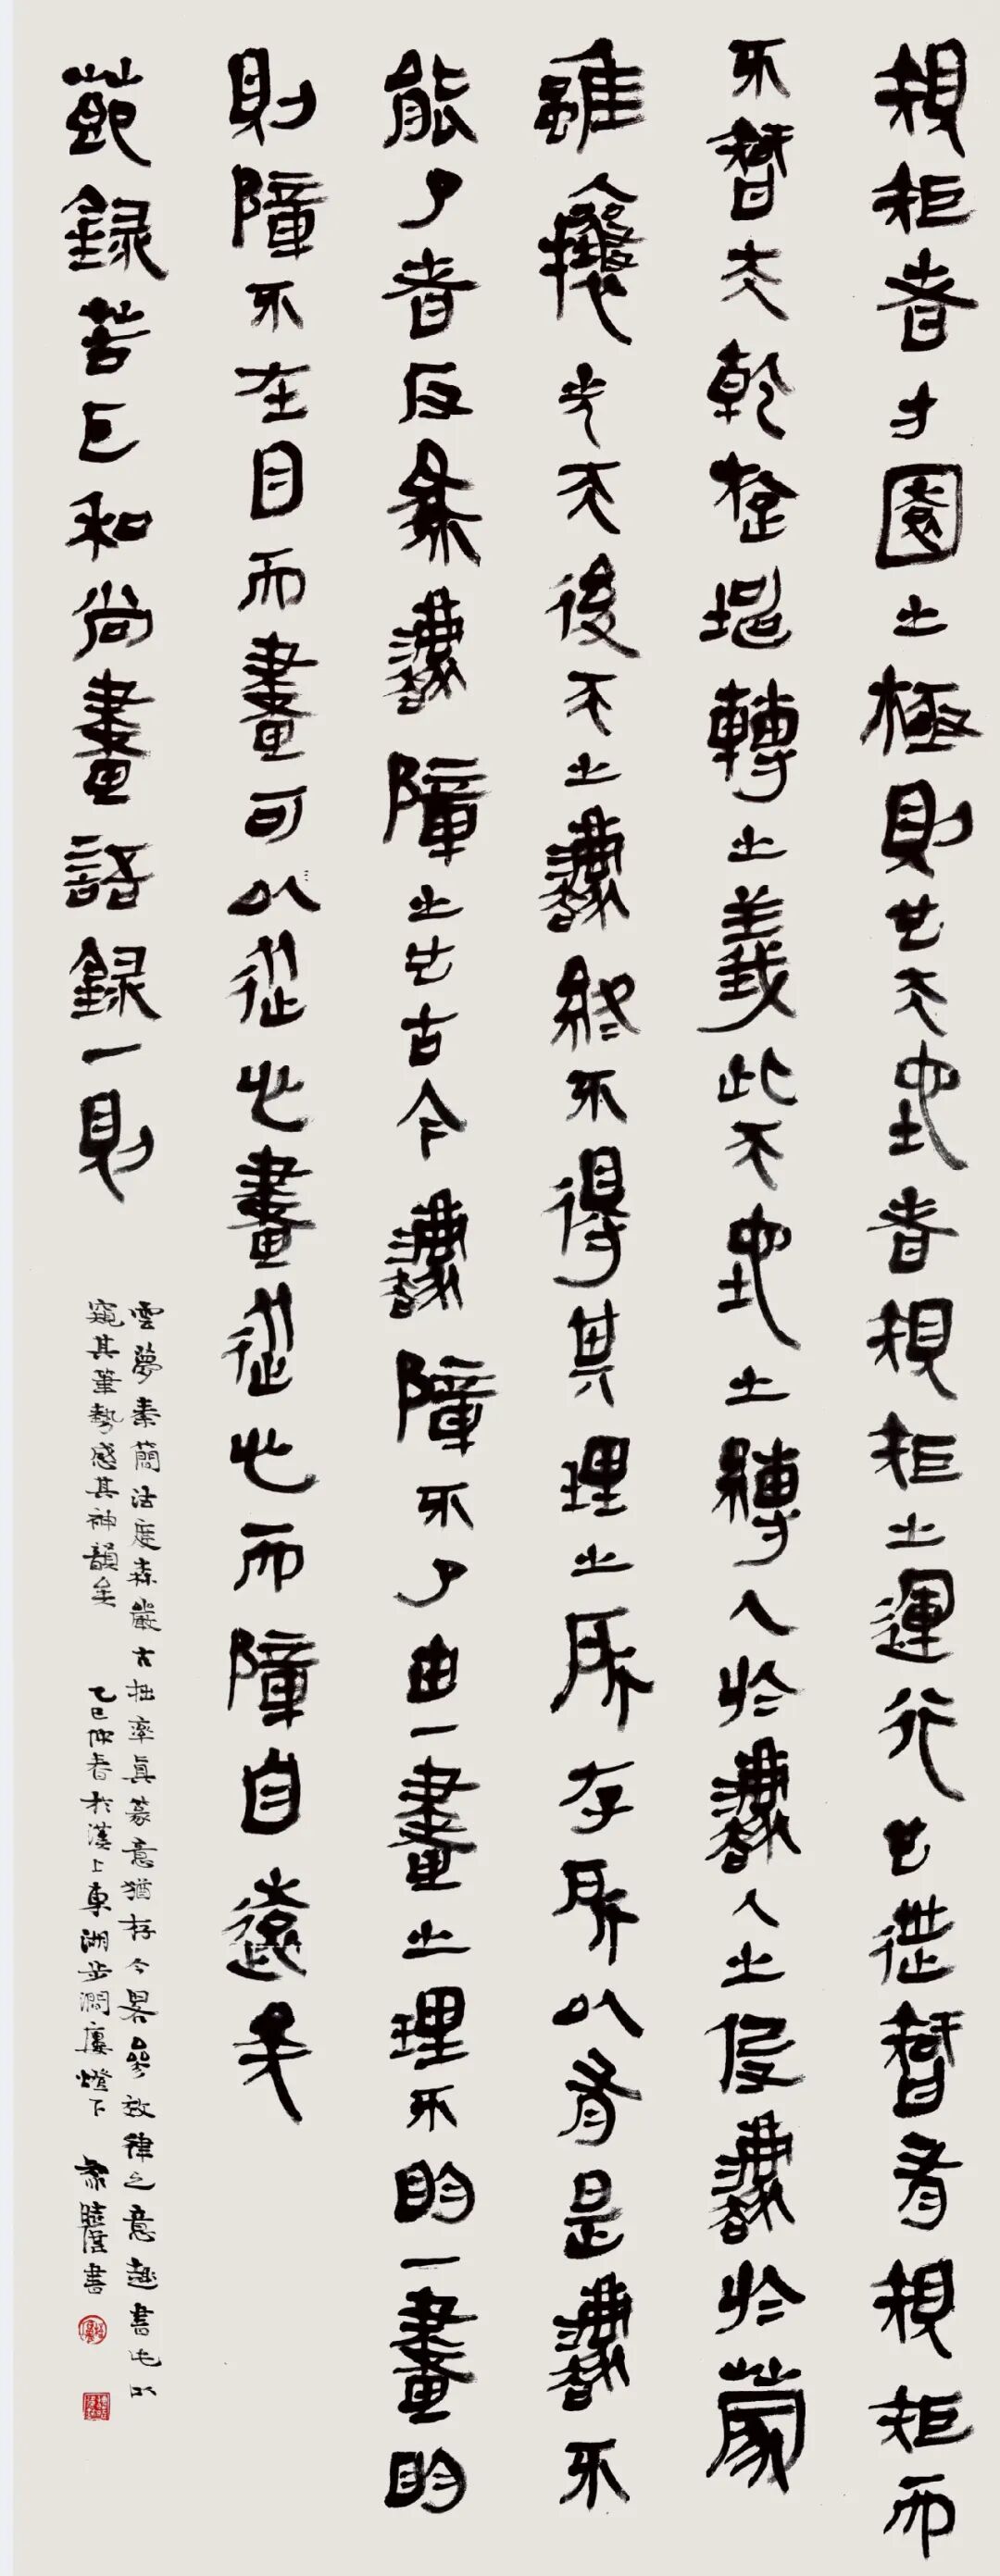 規矩者方圜之極則也天地者規矩之運行也世智有規矩而
不智夫乾旋坤轉之義此天地之縛人於灋人之役灋於蒙
雖攘先天後天之灋終不得其理之所存所以有是灋不
能了者反為灋障之也古今灋障不了由一畫之理不明一畫明
則障不在目而畫可以從心畫從心而障自遠矣
節錄苦瓜和尚畫語錄一則
雲夢秦簡法度森嚴古拙率真篆意猶存今畧參放律之意趣書此以
窺其筆勢感其神韻矣 乙巳仲春於漢上東湖步澗廔燈下 書